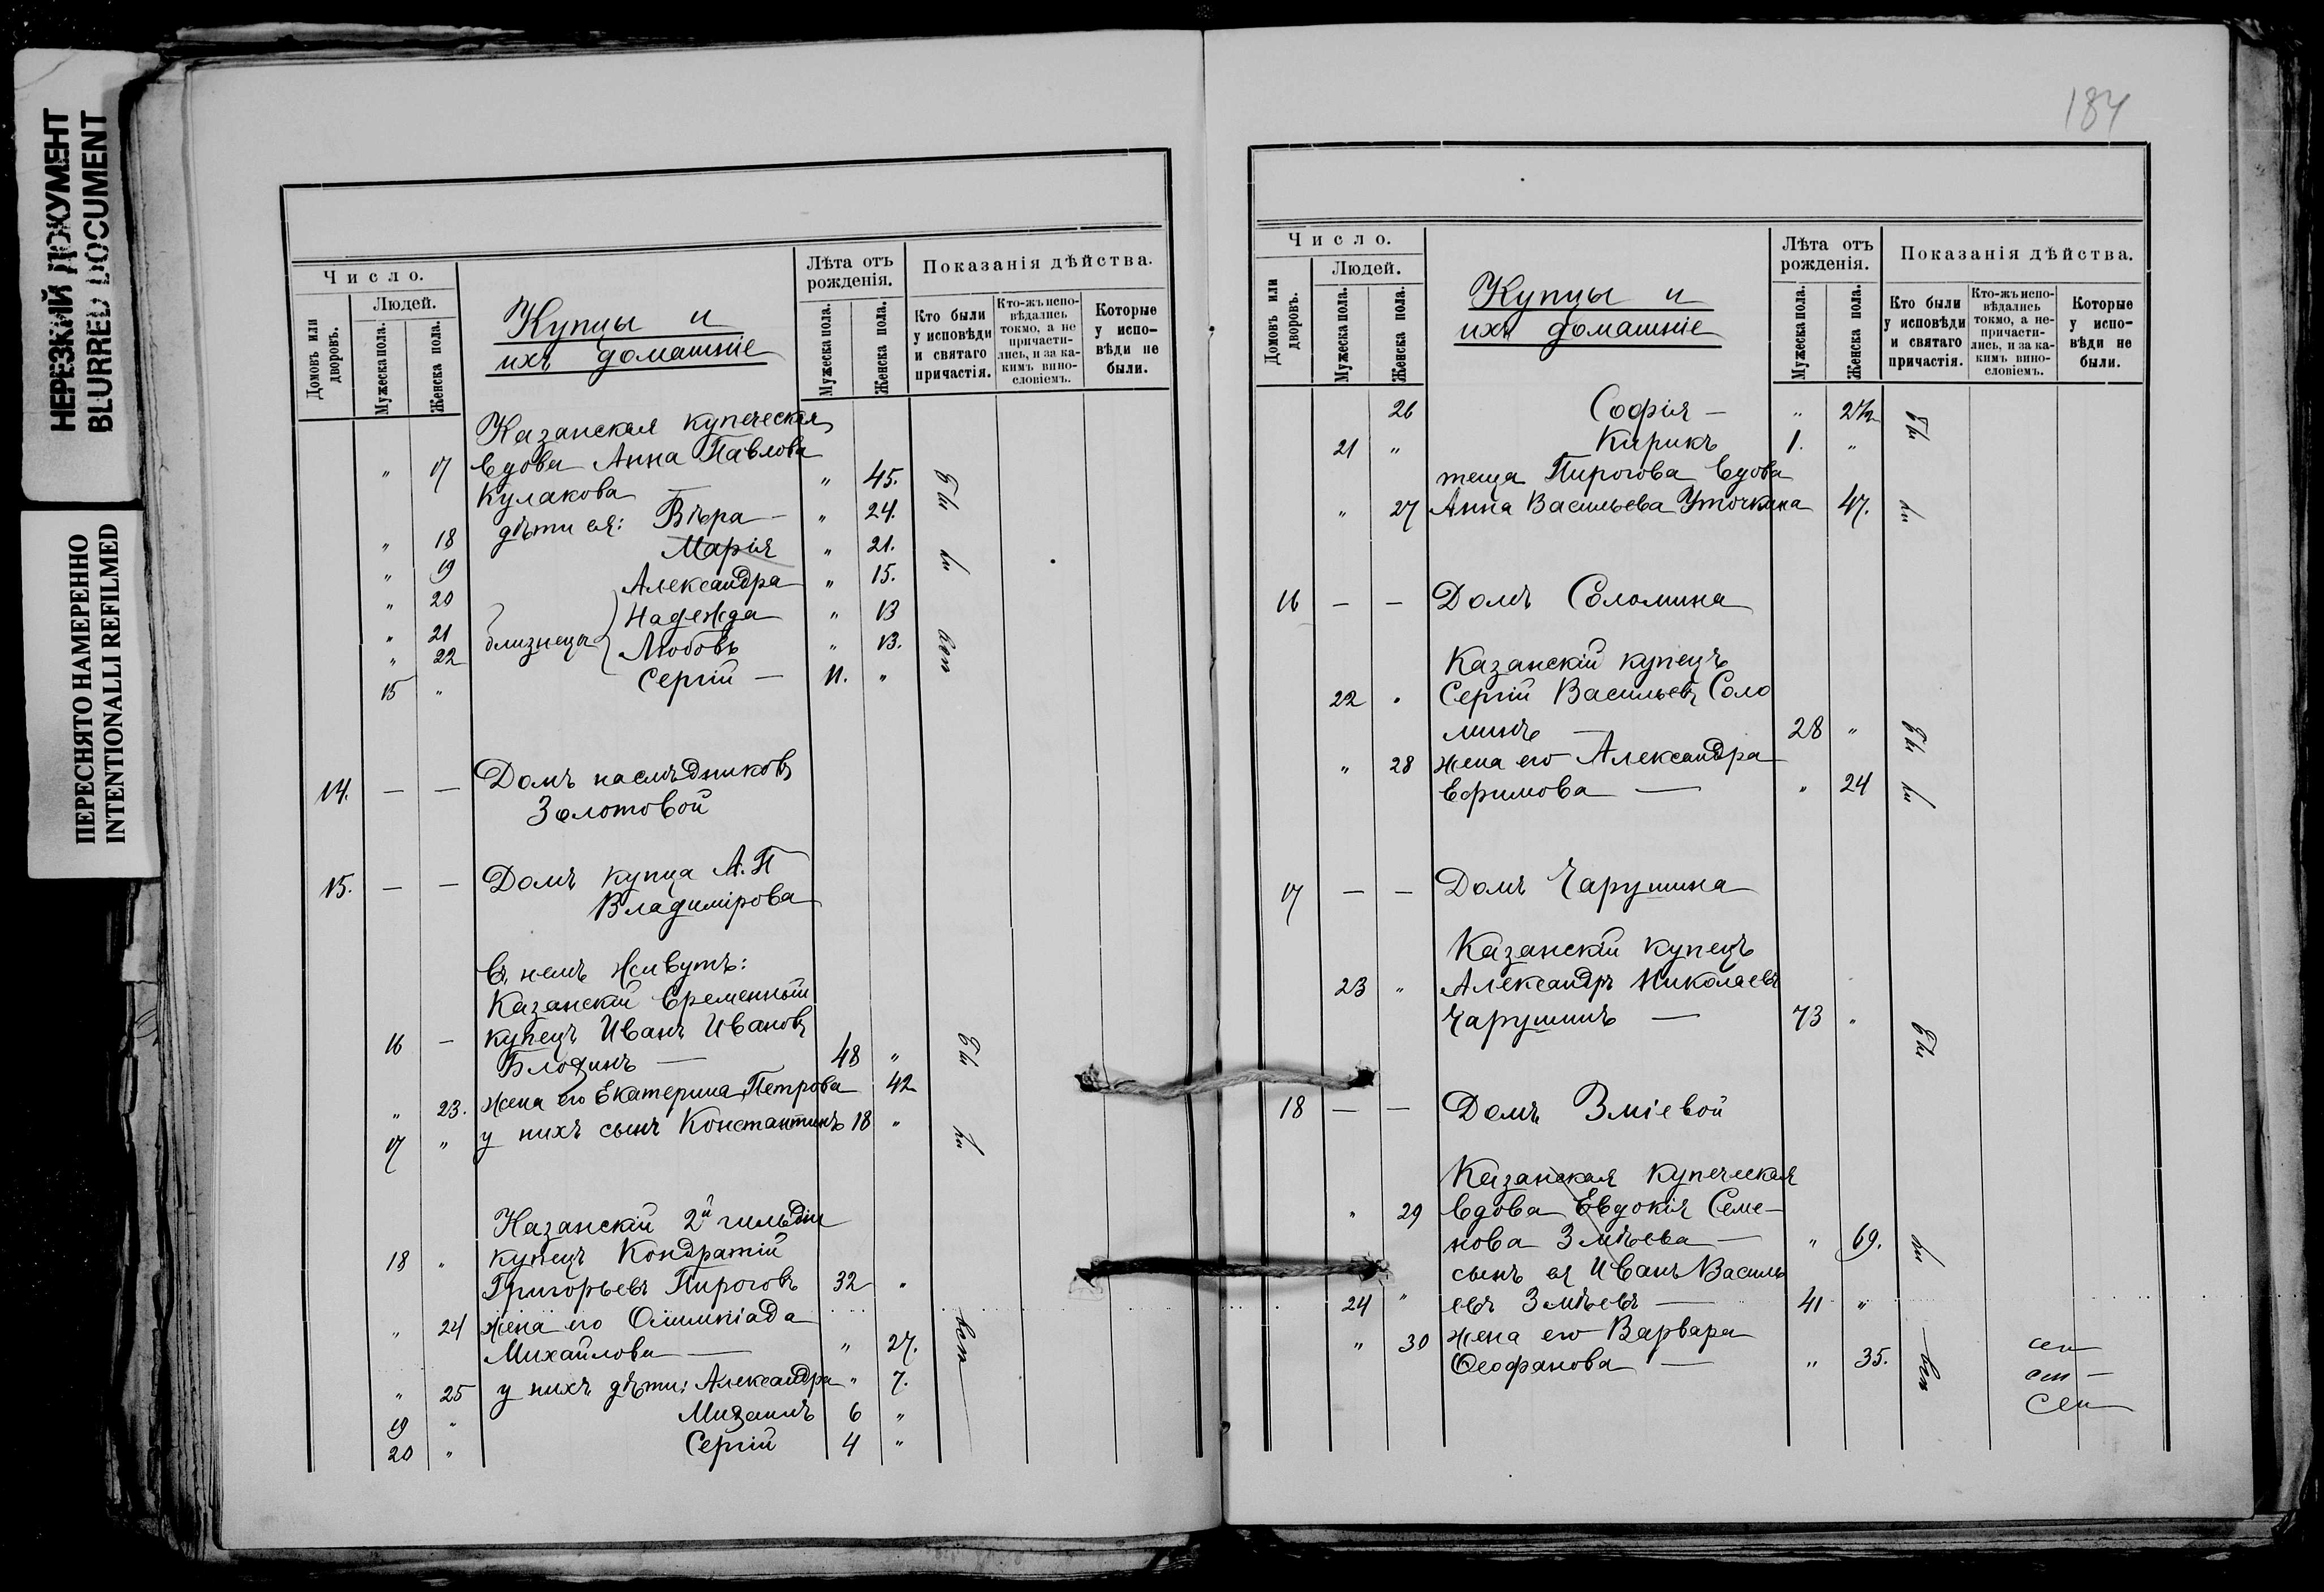 НЕРЕЗКИЙ ДОКУМЕНТ
BLURRED DOCUMENT
ПЕРЕСНЯТО НАМЕРЕННО
INTENTIONALLI REFILMED
Число.
Людей.
Домовъ или дворовъ.
Мужеска пола.
Женска пола.
Купцы и
ихъ домашніе
Лѣта отъ рожденія.
Мужеска пола.
Женска пола.
Показанія дѣйства.
Кто были у исповѣди и святаго причастія.
Кто-жъ исповѣдались токмо, а не причастились, и за какимъ винословіемъ.
Которые у исповѣди не были.
Казанская купеческая
" 17 вдова Анна Павлова
Кулакова — " 45.
" 18 дѣти ея: Вѣра — " 24.
" 19 Марія " 21.
" 20 Александра " 15.
" 21 близнецы Надежда " 13
" 22 Любовь " 13.
15 " Сергій — 11. "
14. — — Домъ наслѣдниковъ
Золотовой
15. — — Домъ купца А. П
Владимірова
Въ немъ живутъ:
Казанскій временный
16 — купецъ Иванъ Ивановъ
Блохинъ — 48 "
" 23. жена его Екатерина Петрова 42
17 " у нихъ сынъ Константинъ 18 "
Казанскій 2й гильдіи
18 " купецъ Кондратій
Григорьевъ Пироговъ 32 "
" 24 жена его Олимпіада
Михайлова — " 27.
" 25 у нихъ дѣти: Александра " 7.
19 " Михаилъ 6 "
20 " Сергій 4 "
184
Число.
Людей.
Домовъ или дворовъ.
Мужеска пола.
Женска пола.
Купцы и
ихъ домашніе
Лѣта отъ рожденія.
Мужеска пола.
Женска пола.
Показанія дѣйства.
Кто были у исповѣди и святаго причастія.
Кто-жъ исповѣдались токмо, а не-причастились, и за какимъ винословіемъ.
Которые у исповѣди не были.
26 Софія — " 2½
21 " Кирикъ 1. "
теща Пирогова вдова
" 27 Анна Васильева Уточкина 47.
16 — — Домъ Соломина
Казанскій купецъ
22 " Сергій Васильевъ Соло
минъ — 28 "
" 28 жена его Александра
Ефимова — " 24
17 — — Домъ Чарушина
Казанскій купецъ
23 " Александръ Николаевъ
Чарушинъ — 73 "
18 — — Домъ Зміевой
Казанская купеческая
" 29 вдова Евдокія Семе-
нова Змѣева — " 69.
сынъ ея Иванъ Василь
24 " евъ Змѣевъ — 41 "
" 30 жена его Варвара
Ѳеофанова — " 35.